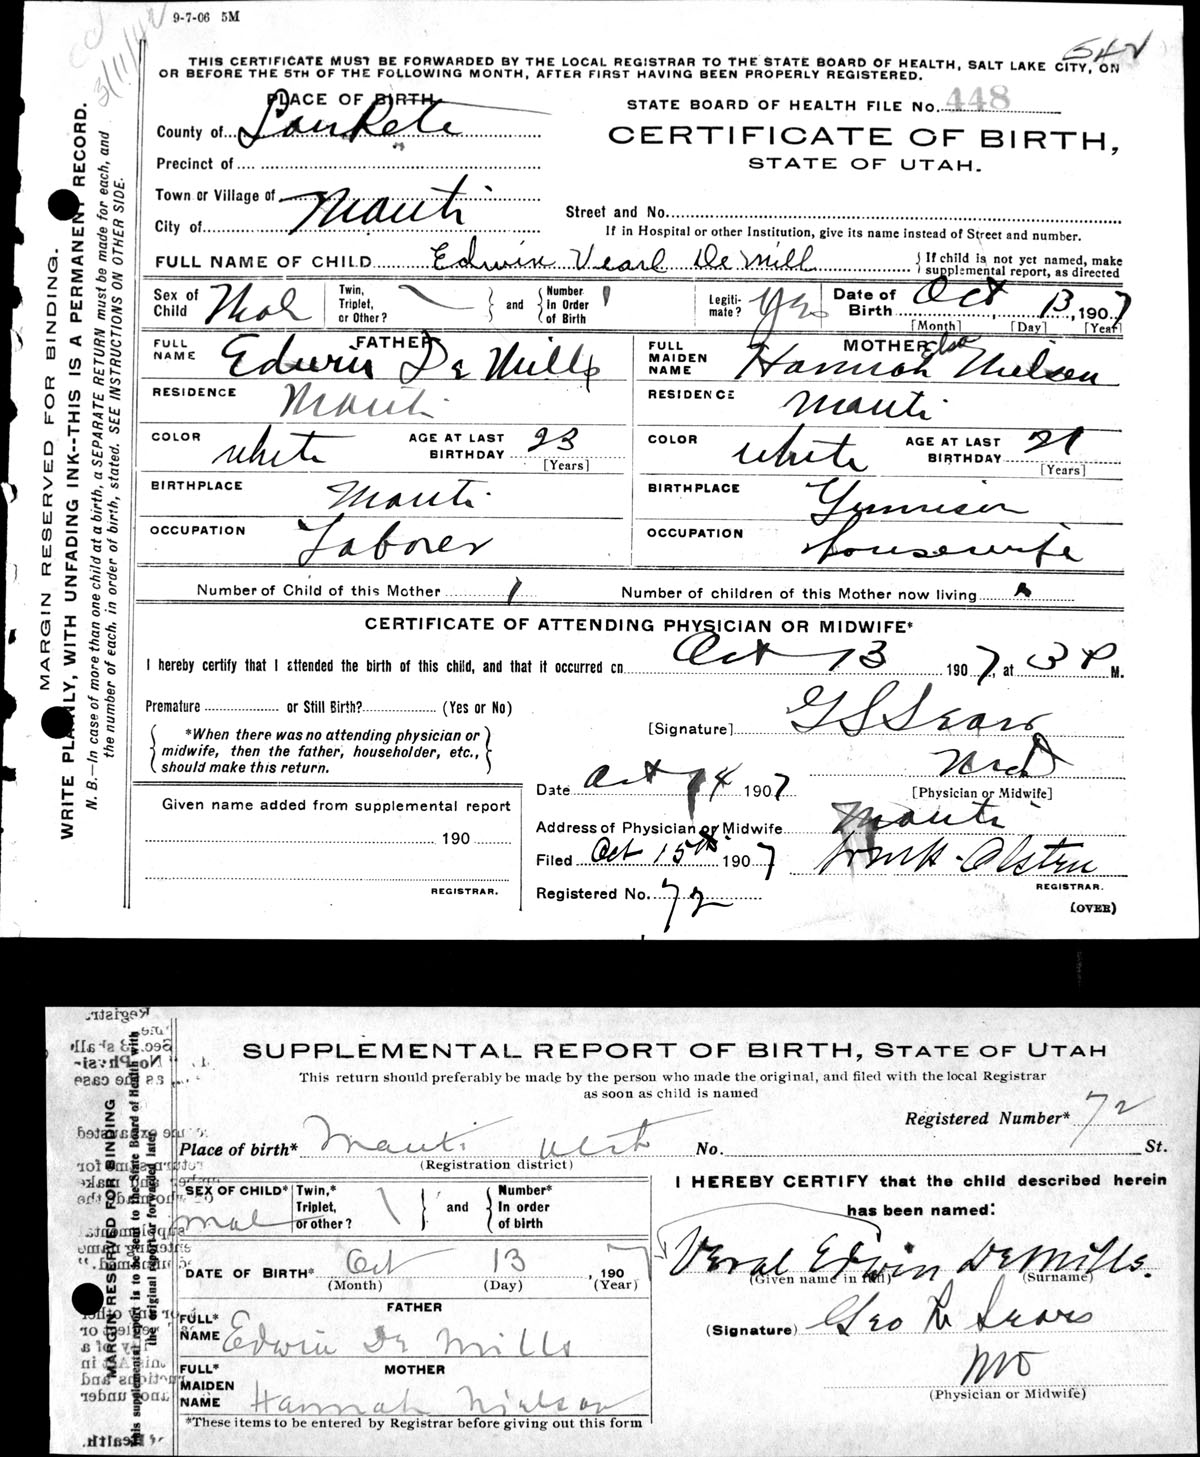 9-7-06 5M
3/11/42
542
THIS CERTIFICATE MUST BE FORWARDED BY THE LOCAL REGISTRAR TO THE STATE BOARD OF HEALTH, SALT LAKE CITY, ON
OR BEFORE THE 5TH OF THE FOLLOWING MONTH, AFTER FIRST HAVING BEEN PROPERLY REGISTERED.
PLACE OF BIRTH
STATE BOARD OF HEALTH FILE No. 448
County of SanPete
CERTIFICATE OF BIRTH,
STATE OF UTAH.
Precinct of
Town or Village of
City of Manti
Street and No.
If in Hospital or other Institution, give its name instead of Street and number.
FULL NAME OF CHILD Edwin Vearl De Mill
If child is not yet named, make supplemental report, as directed
Sex of Child Mal
Twin, Triplet, or Other?
and
Number In Order of Birth 1
Legiti- mate? Yes
Date of Birth Oct 13, 1907
[Month] [Day] [Year]
FATHER
FULL NAME Edwin De Mills
RESIDENCE Manti
COLOR white
AGE AT LAST BIRTHDAY 23
[Years]
BIRTHPLACE Manti
OCCUPATION Laborer
MOTHER
FULL MAIDEN NAME Hannah Elsa Nielsen
RESIDENCE Manti
COLOR white
AGE AT LAST BIRTHDAY 21
[Years]
BIRTHPLACE Gunnison
OCCUPATION housewife
Number of Child of this Mother 1
Number of children of this Mother now living
CERTIFICATE OF ATTENDING PHYSICIAN OR MIDWIFE*
I hereby certify that I attended the birth of this child, and that it occurred on Oct 13 1907, at 3 P M.
Premature or Still Birth? (Yes or No)
*When there was no attending physician or
midwife, then the father, householder, etc.,
should make this return.
[Signature] G L Sears
MD
[Physician or Midwife]
Date Oct 14 1907
Address of Physician or Midwife Manti
Given name added from supplemental report
190
REGISTRAR.
Filed Oct 15th 1907
REGISTRAR.
Registered No. 72
(OVER)
MARGIN RESERVED FOR BINDING.
WRITE PLAINLY, WITH UNFADING INK--THIS IS A PERMANENT RECORD.
N. B.—In case of more than one child at a birth, a SEPARATE RETURN must be made for each, and
the number of each, in order of birth, stated. SEE INSTRUCTIONS ON OTHER SIDE.
SUPPLEMENTAL REPORT OF BIRTH, STATE OF UTAH
This return should preferably be made by the person who made the original, and filed with the local Registrar
as soon as child is named
Registered Number* 72
Place of birth* Manti Utah No. St.
(Registration district)
SEX OF CHILD* Mal
Twin,* Triplet, or other?
and
Number* In order of birth
DATE OF BIRTH* Oct 13, 1907
(Month) (Day) (Year)
FATHER
FULL* NAME Edwin De Mills
MOTHER
FULL* MAIDEN NAME Hannah Nielson
*These items to be entered by Registrar before giving out this form
I HEREBY CERTIFY that the child described herein
has been named:
Veral Edwin DeMills.
(Given name in full) (Surname)
(Signature) Geo L Sears
MD
(Physician or Midwife)
MARGIN RESERVED FOR BINDING
This supplemental report is to be sent to the State Board of Health with
the original report or forwarded later